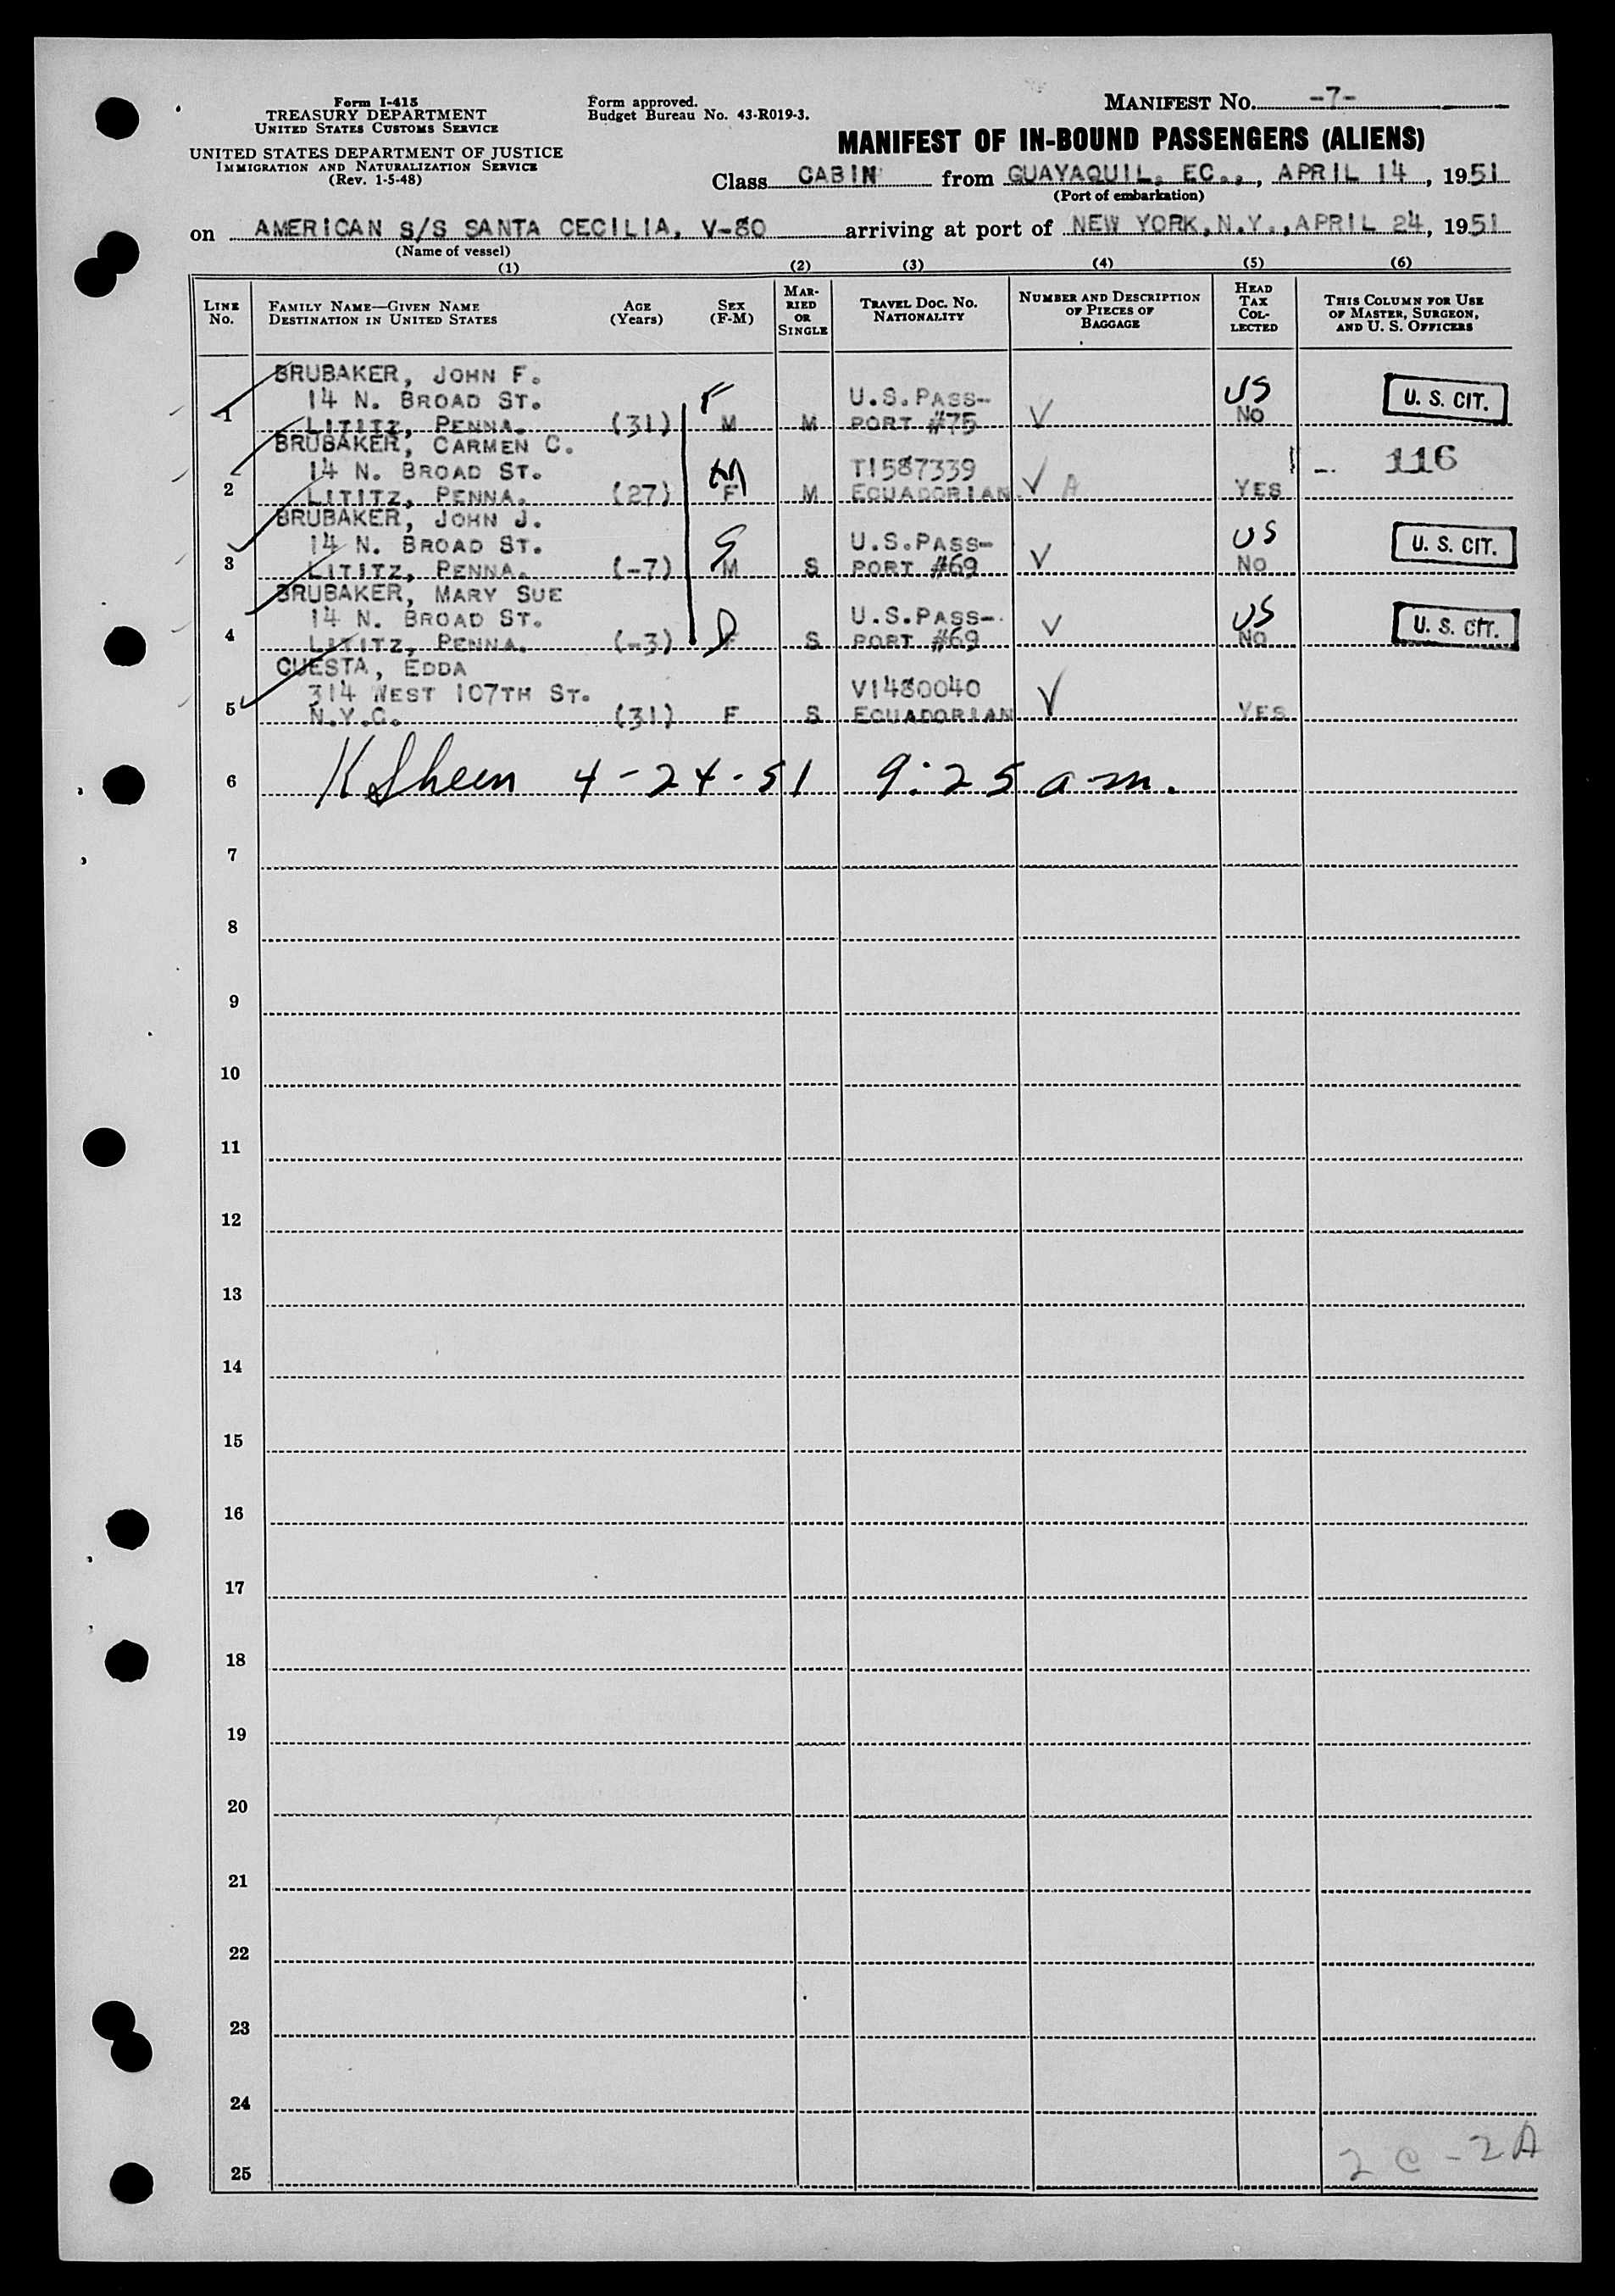 Form I-415
TREASURY DEPARTMENT
UNITED STATES CUSTOMS SERVICE
UNITED STATES DEPARTMENT OF JUSTICE
IMMIGRATION AND NATURALIZATION SERVICE
(Rev. 1-5-48)
Form approved.
Budget Bureau No. 43-R019-3.
MANIFEST NO. -7-
MANIFEST OF IN-BOUND PASSENGERS (ALIENS)
Class CABIN from GUAYAQUIL, EC., , APRIL 14 , 1951
(Port of embarkation)
on AMERICAN S/S SANTA CECILIA, V-80 arriving at port of NEW YORK, N.Y., APRIL 24, 1951
(Name of vessel)
(1) (2) (3) (4) (5) (6)
LINE No.
FAMILY NAME—GIVEN NAME
DESTINATION IN UNITED STATES
AGE (Years)
SEX (F-M)
MAR-
RIED
OR
SINGLE
TRAVEL DOC. NO.
NATIONALITY
NUMBER AND DESCRIPTION
OF PIECES OF
BAGGAGE
HEAD
TAX
COL-
LECTED
THIS COLUMN FOR USE
OF MASTER, SURGEON,
AND U. S. OFFICERS
BRUBAKER, JOHN F.
14 N. BROAD ST. F U.S.PASS- US U. S. CIT.
1 LITITZ, PENNA. (31) M M PORT #75 NO
BRUBAKER, CARMEN C.
14 N. BROAD ST. M T1587339 116
2 LITITZ, PENNA. (27) F M ECUADORIAN A YES
BRUBAKER, JOHN J.
14 N. BROAD ST. S U.S.PASS- US U. S. CIT.
3 LITITZ, PENNA. (-7) M S PORT #69 NO
BRUBAKER, MARY SUE
14 N. BROAD ST. D U.S.PASS- US U. S. CIT.
4 LITITZ, PENNA. (-3) F S PORT #69 NO
CUESTA, EDDA
314 WEST 107TH ST. V1480040
5 N.Y.C. (31) F S ECUADORIAN YES
6 K Sheen 4-24-51 9:25 a.m.
7
8
9
10
11
12
13
14
15
16
17
18
19
20
21
22
23
24
2 C - 2 A
25